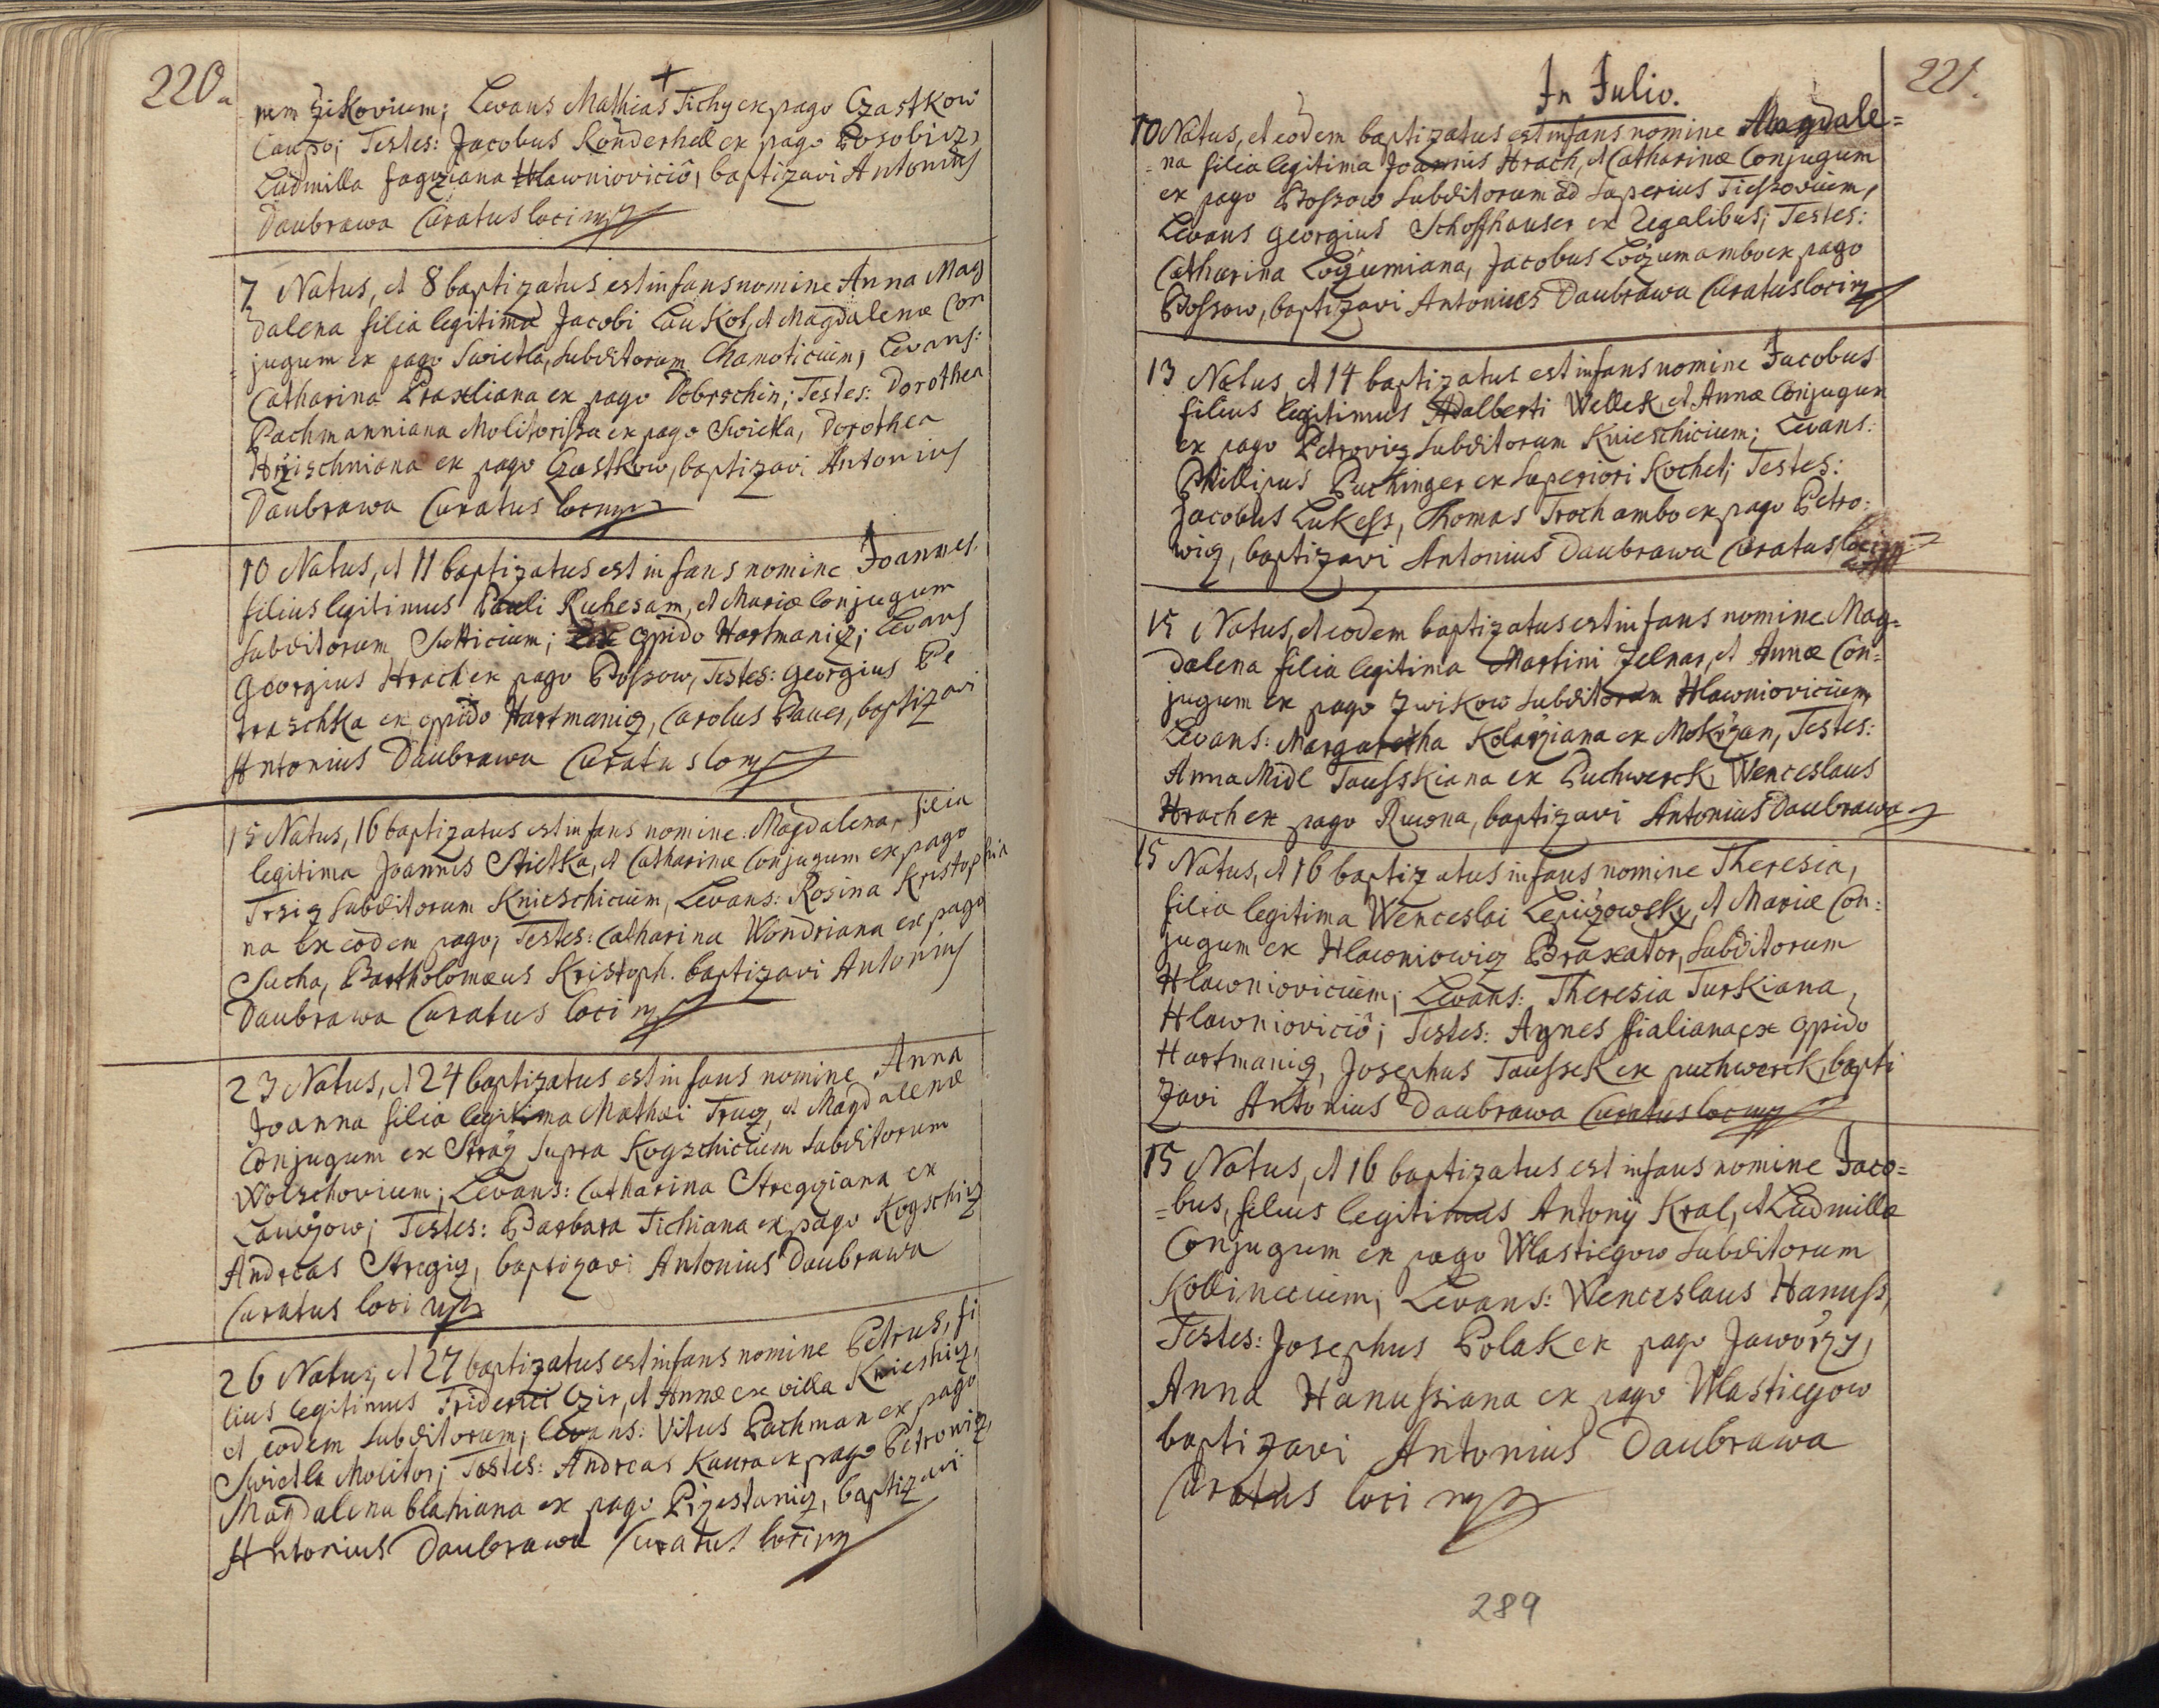 220a
rem Zikovicum; Levans Mathias Tichy ex pago Czastkow
Caupo; Testes: Jacobus Könderhell ex pago Bosobicz,
Ludmilla Fagziana Hlawniovicio, baptizavi Antonius
Daubrawa Curatus loci mp
7 Natus, et 8 baptizatus est infans nomine Anna Mag
dalena filia legitima Jacobi Laukot, et Magdalenæ Con
jugum ex pago Swietla, subditorum Chanoticium, Levans:
Catharina Praxliana ex pago Dobrschin; Testes: Dorothea
Pachmanniana Molitorissa ex pago Swietla, Dorothea
Hrzischniana ex pago Czastkow, baptizavi Antonius
Daubrawa Curatus loci mp
10 Natus, et 11 baptizatus est infans nomine Joannes
filius legitimus Pauli Ruhesam, et Mariæ Conjugum
subditorum Sutticium; ex Opido Hartmanicz; Levans
Georgius Hrach ex pago Possow, Testes: Georgius Pe
traschka ex oppido Hartmanicz, Carolus Pauer, baptizavi
Antonius Daubrawa Curatus loci mp
15 Natus, 16 baptizatus est infans nomine Magdalena, filia
legitima Joannis Stietka, et Catharinæ Conjugum ex pago
Trsicz subditorum Knieschicium, Levans: Rosina Kristophia
na ex eodem pago; Testes: Catharina Wondriana ex pago
Sucha, Bartholomæus Kristoph. baptizavi Antonius
Daubrawa Curatus loci mp
23 Natus, et 24 baptizatus est infans nomine Anna
Joanna filia legitima Mathæi Trucz, et Magdalenæ
Conjugum ex Straz supra Kogschicium subditorum
Wolschovicum; Levans: Catharina Stregziana ex
Lawizow; Testes: Barbara Tichiana ex pago Kogschicz
Andreas Stregicz, baptizavi Antonius Daubrawa
Curatus loci mp
26 Natus, et 27 baptizatus est infans nomine Petrus, fi
lius legitimus Friderici Czir, et Annæ ex villa Knieshicz,
et eodem subditorum; Levans: Vitus Pachman ex pago
Swietla Molitor; Testes: Andreas Kaura ex pago Petrowicz,
Magdalena blahiana ex pago Pizestanicz, baptizavi
Antonius Daubrawa Curatus loci mp
221.
In Julio.
10 Natus, et eodem baptizatus est infans nomine Magdale=
=na filia legitima Joannis Hrach, et Catharinæ Conjugum
ex pago Possow subditorum ad superius Tieszovicum,
Levans Georgius Schoffhauser ex Regalibus; Testes:
Catharina Loizumiana, Jacobus Loizum ambo ex pago
Possow, baptizavi Antonius Daubrawa Curatus loci mp
13 Natus et 14 baptizatus est infans nomine Jacobus
filius legitimus Adalberti Wellek, et Annæ Conjugum
ex pago Petrovicz subditorum Knieschicium; Levans:
Phillipus Puchinger ex superiori Kochet; Testes:
Jacobus Lukess, Thomas Troch ambo ex pago Petro:
wicz, baptizavi Antonius Daubrawa Curatus loci mp
15 Natus, et eodem baptizatus est infans nomine Mag=
dalena filia legitima Martini Zelnar, et Annæ Con=
jugum ex pago Zwikow subditorum Hlawniovicium,
Levans: Margaretha Kolarziana ex Mokrzan, Testes:
Anna Midl Tausskiana ex Puchwerck, Wenceslaus
Hrach ex pago Ruwna, baptizavi Antonius Daubrawa
15 Natus, et 16 baptizatus infans nomine Theresia,
filia legitima Wenceslai Lepiczowsky, et Mariæ Con:
jugum ex Hlawniowicz Braxator, subditorum
Hlawniovicium; Levans: Theresia Turkiana,
Hlawniovicio; Testes: Agnes Fialiana, ex Opido
Hartmanicz, Josephus Taussek ex puchwerck, bapti
zavi Antonius Daubrawa Curatus loci mp
15 Natus, et 16 baptizatus est infans nomine Jaco=
=bus, filius legitimus Antonij Kral, et Ludmillæ
Conjugum ex pago Wlastiegow subditorum
Kollinecium; Levans: Wenceslaus Hanuss,
Testes: Josephus Polak ex pago Jaworzy,
Anna Hanussiana ex pago Wlastiegow
baptizavi Antonius Daubrawa
Curatus loci mp
289